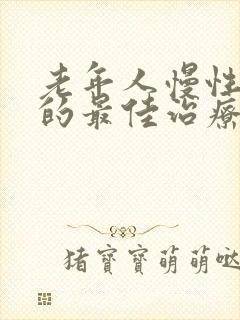 老年人慢性
的最佳治療
猪寶寶萌萌哒